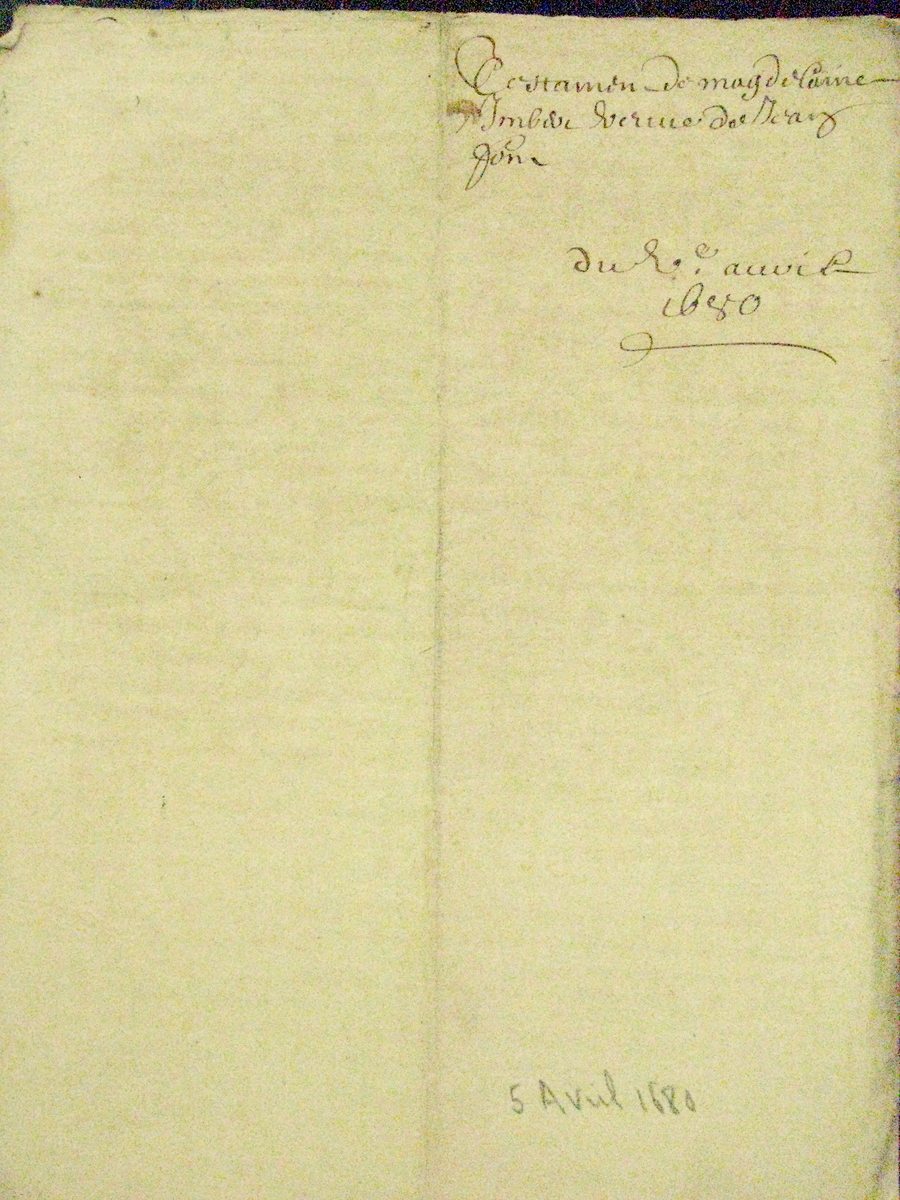 Testamen de magdelaine
Imber veuue de Jean
fon
du V.e auril
1680
5 Avril 1680